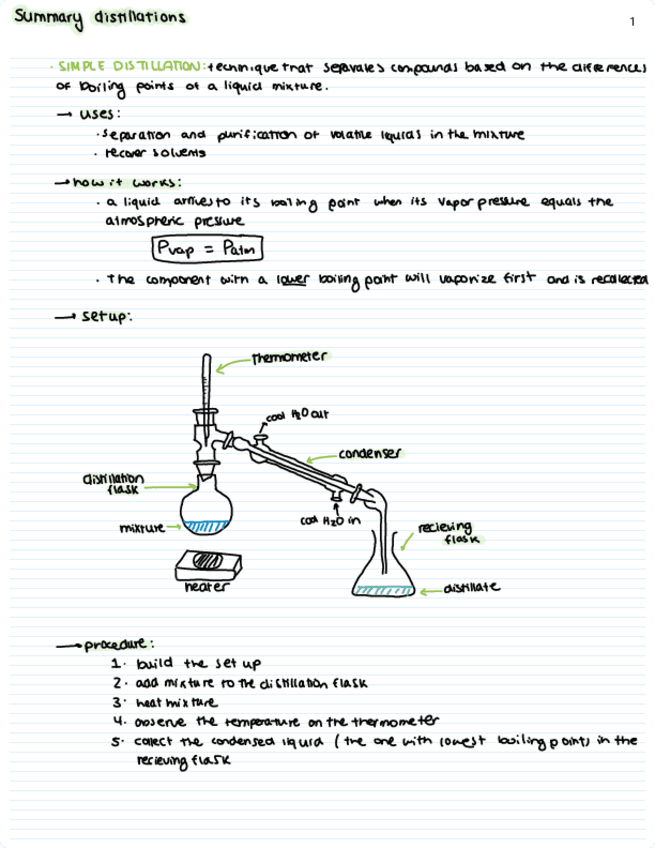 Summary distillations
1
· SIMPLE DISTILLATION: technique that separates compounds based on the differences
of boiling points of a liquid mixture.
→ uses:
· separation and purification of volatile liquids in the mixture
· recover solvents
→ how it works:
· a liquid arrives to its boiling point when its vapor pressure equals the
atmospheric pressure
Pvap = Patm
· The component with a lower boiling point will vaporize first and is recolected
→ setup:
thermometer
cool H2O out
condenser
distillation
flask
mixture
cool H2O in
recieving
flask
heater
distillate
→ procedure:
1. build the set up
2. add mixture to the distillation flask
3. heat mixture
4. observe the temperature on the thermometer
5. collect the condensed liquid (the one with lowest boiling point) in the
recieving flask